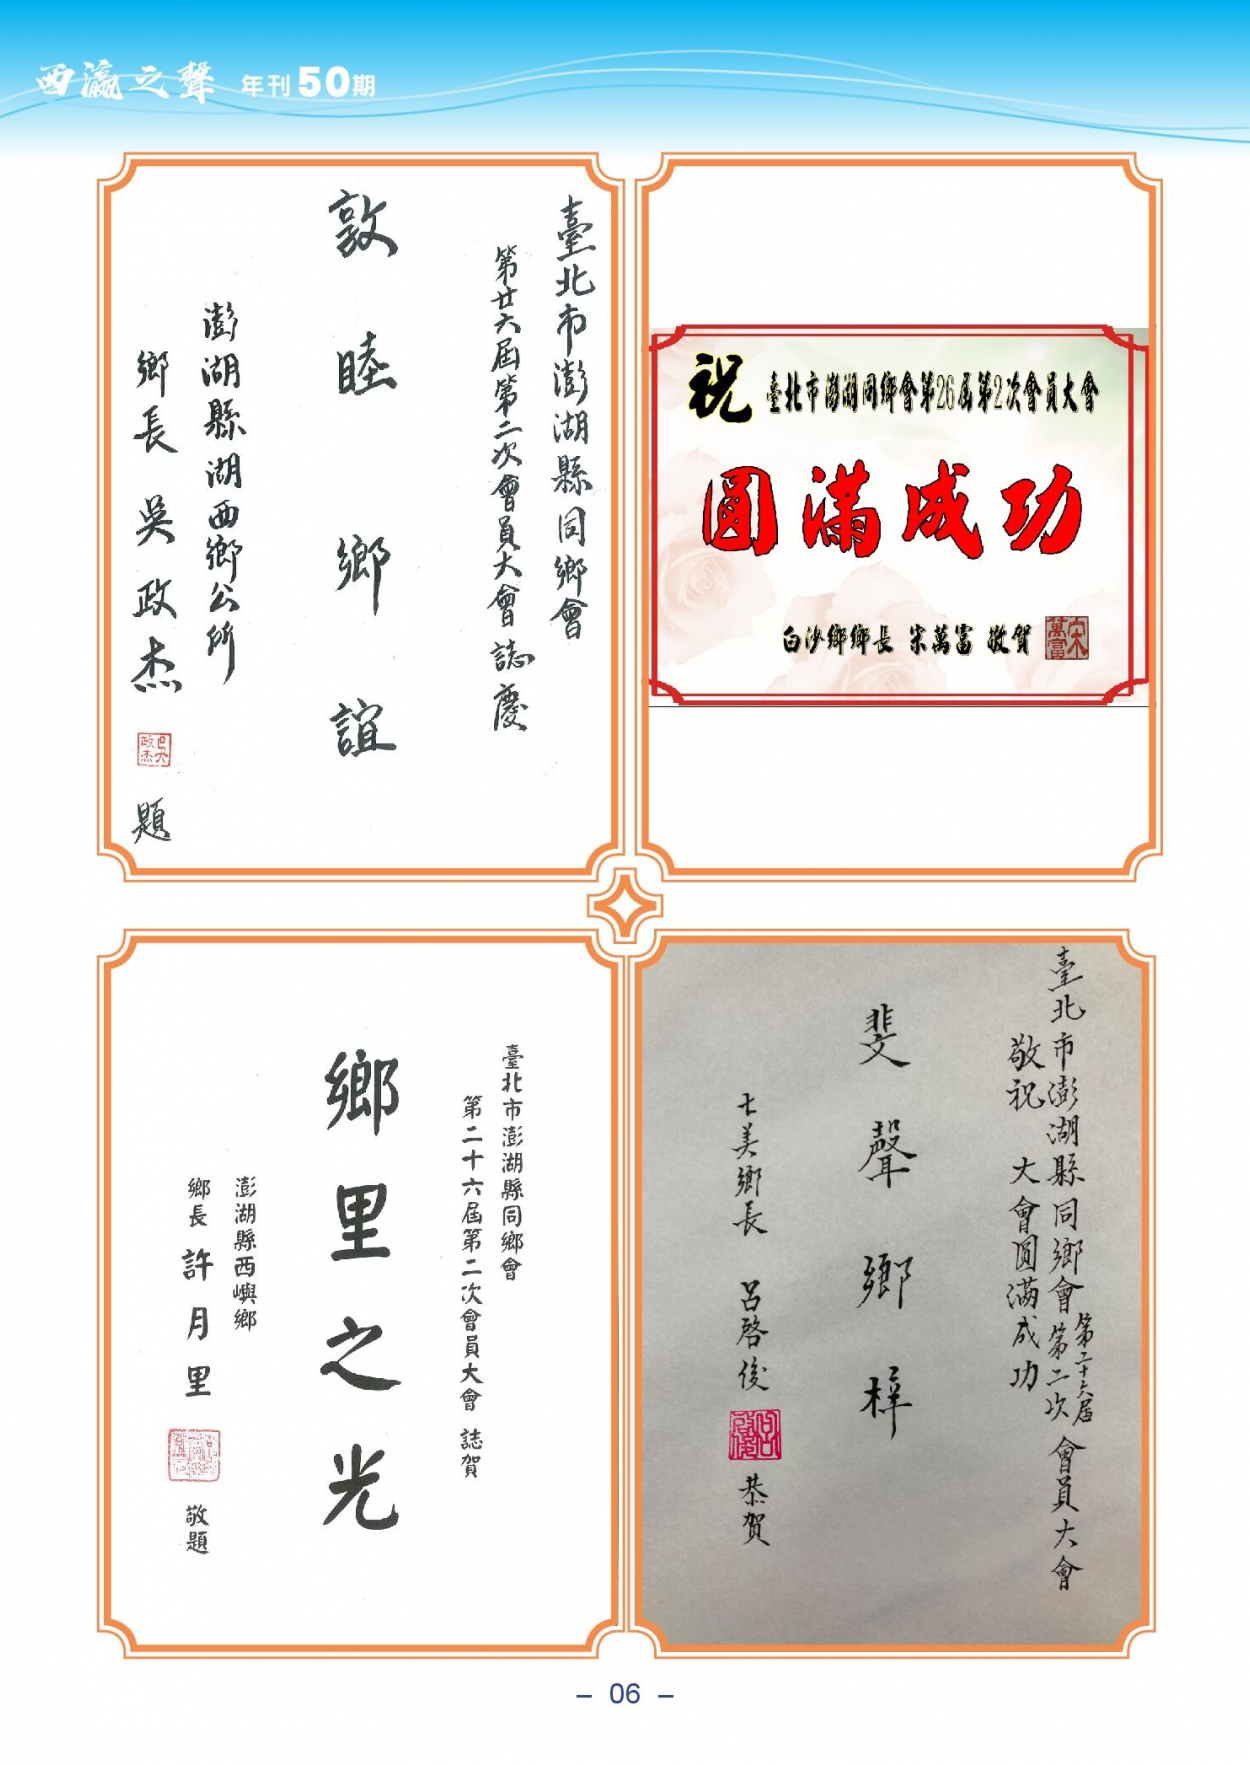 西瀛之聲 年刊50期
臺北市澎湖縣同鄉會
第廿六屆第二次會員大會 誌慶
敦睦鄉誼
澎湖縣湖西鄉公所
鄉長 吳政杰
題
祝 臺北市澎湖同鄉會第26屆第2次會員大會
圓滿成功
白沙鄉鄉長 宋萬富 敬賀
宋萬富
臺北市澎湖縣同鄉會
第二十六屆第二次會員大會 誌賀
鄉里之光
澎湖縣西嶼鄉
鄉長 許月里
敬題
臺北市澎湖縣同鄉會第二十六屆第二次會員大會
敬祝 大會圓滿成功
斐聲鄉梓
七美鄉長 呂啓俊
恭賀
– 06 –